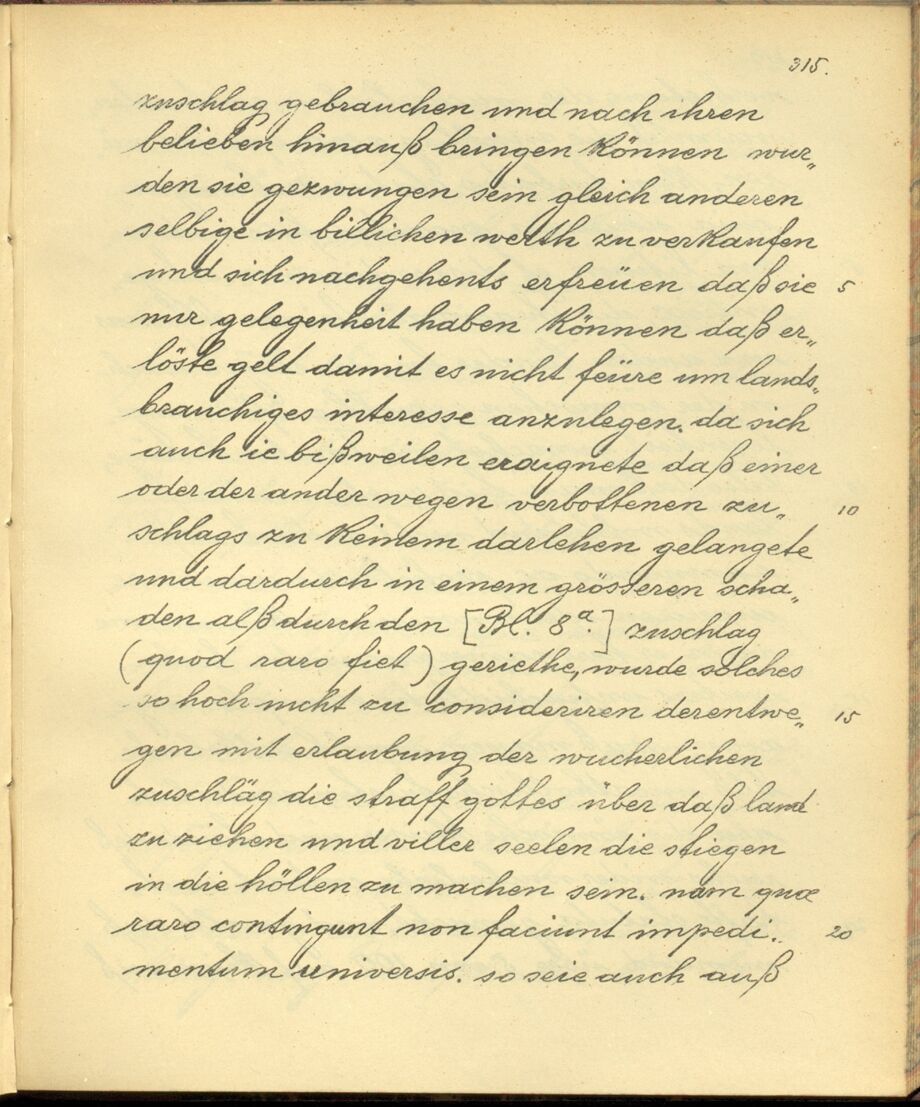 315.
zuschlag gebrauchen und nach ihren
belieben hinauß bringen können wur„
den sie gezwungen sein gleich anderen
selbige in billichen werth zu verkaufen
und sich nachgehents erfreüen daß sie 5
nur gelegenheit haben können daß er„
löste gelt damit es nicht feüre um lands„
brauchiges interesse anzulegen. da sich
auch ie bißweilen eraignete daß einer
oder der ander wegen verbottenen zu„ 10
schlags zu keinem darlehen gelangete
und dardurch in einem grösseren scha„
den alß durch den [Bl. 8ª.] zuschlag
(quod raro fiet) geriethe, wurde solches
so hoch nicht zu consideriren derentwe„ 15
gen mit erlaubung der wucherlichen
zuschläg die straff gottes über daß land
zu ziehen und viller seelen die stiegen
in die höllen zu machen sein. nam quæ
raro contingunt non faciunt impedi„ 20
mentum universis. so seie auch auß